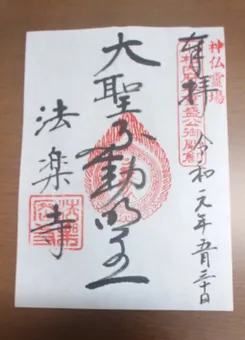 奉拝
神仏霊場
令和元年五月三十日
大聖不動明王
法楽寺